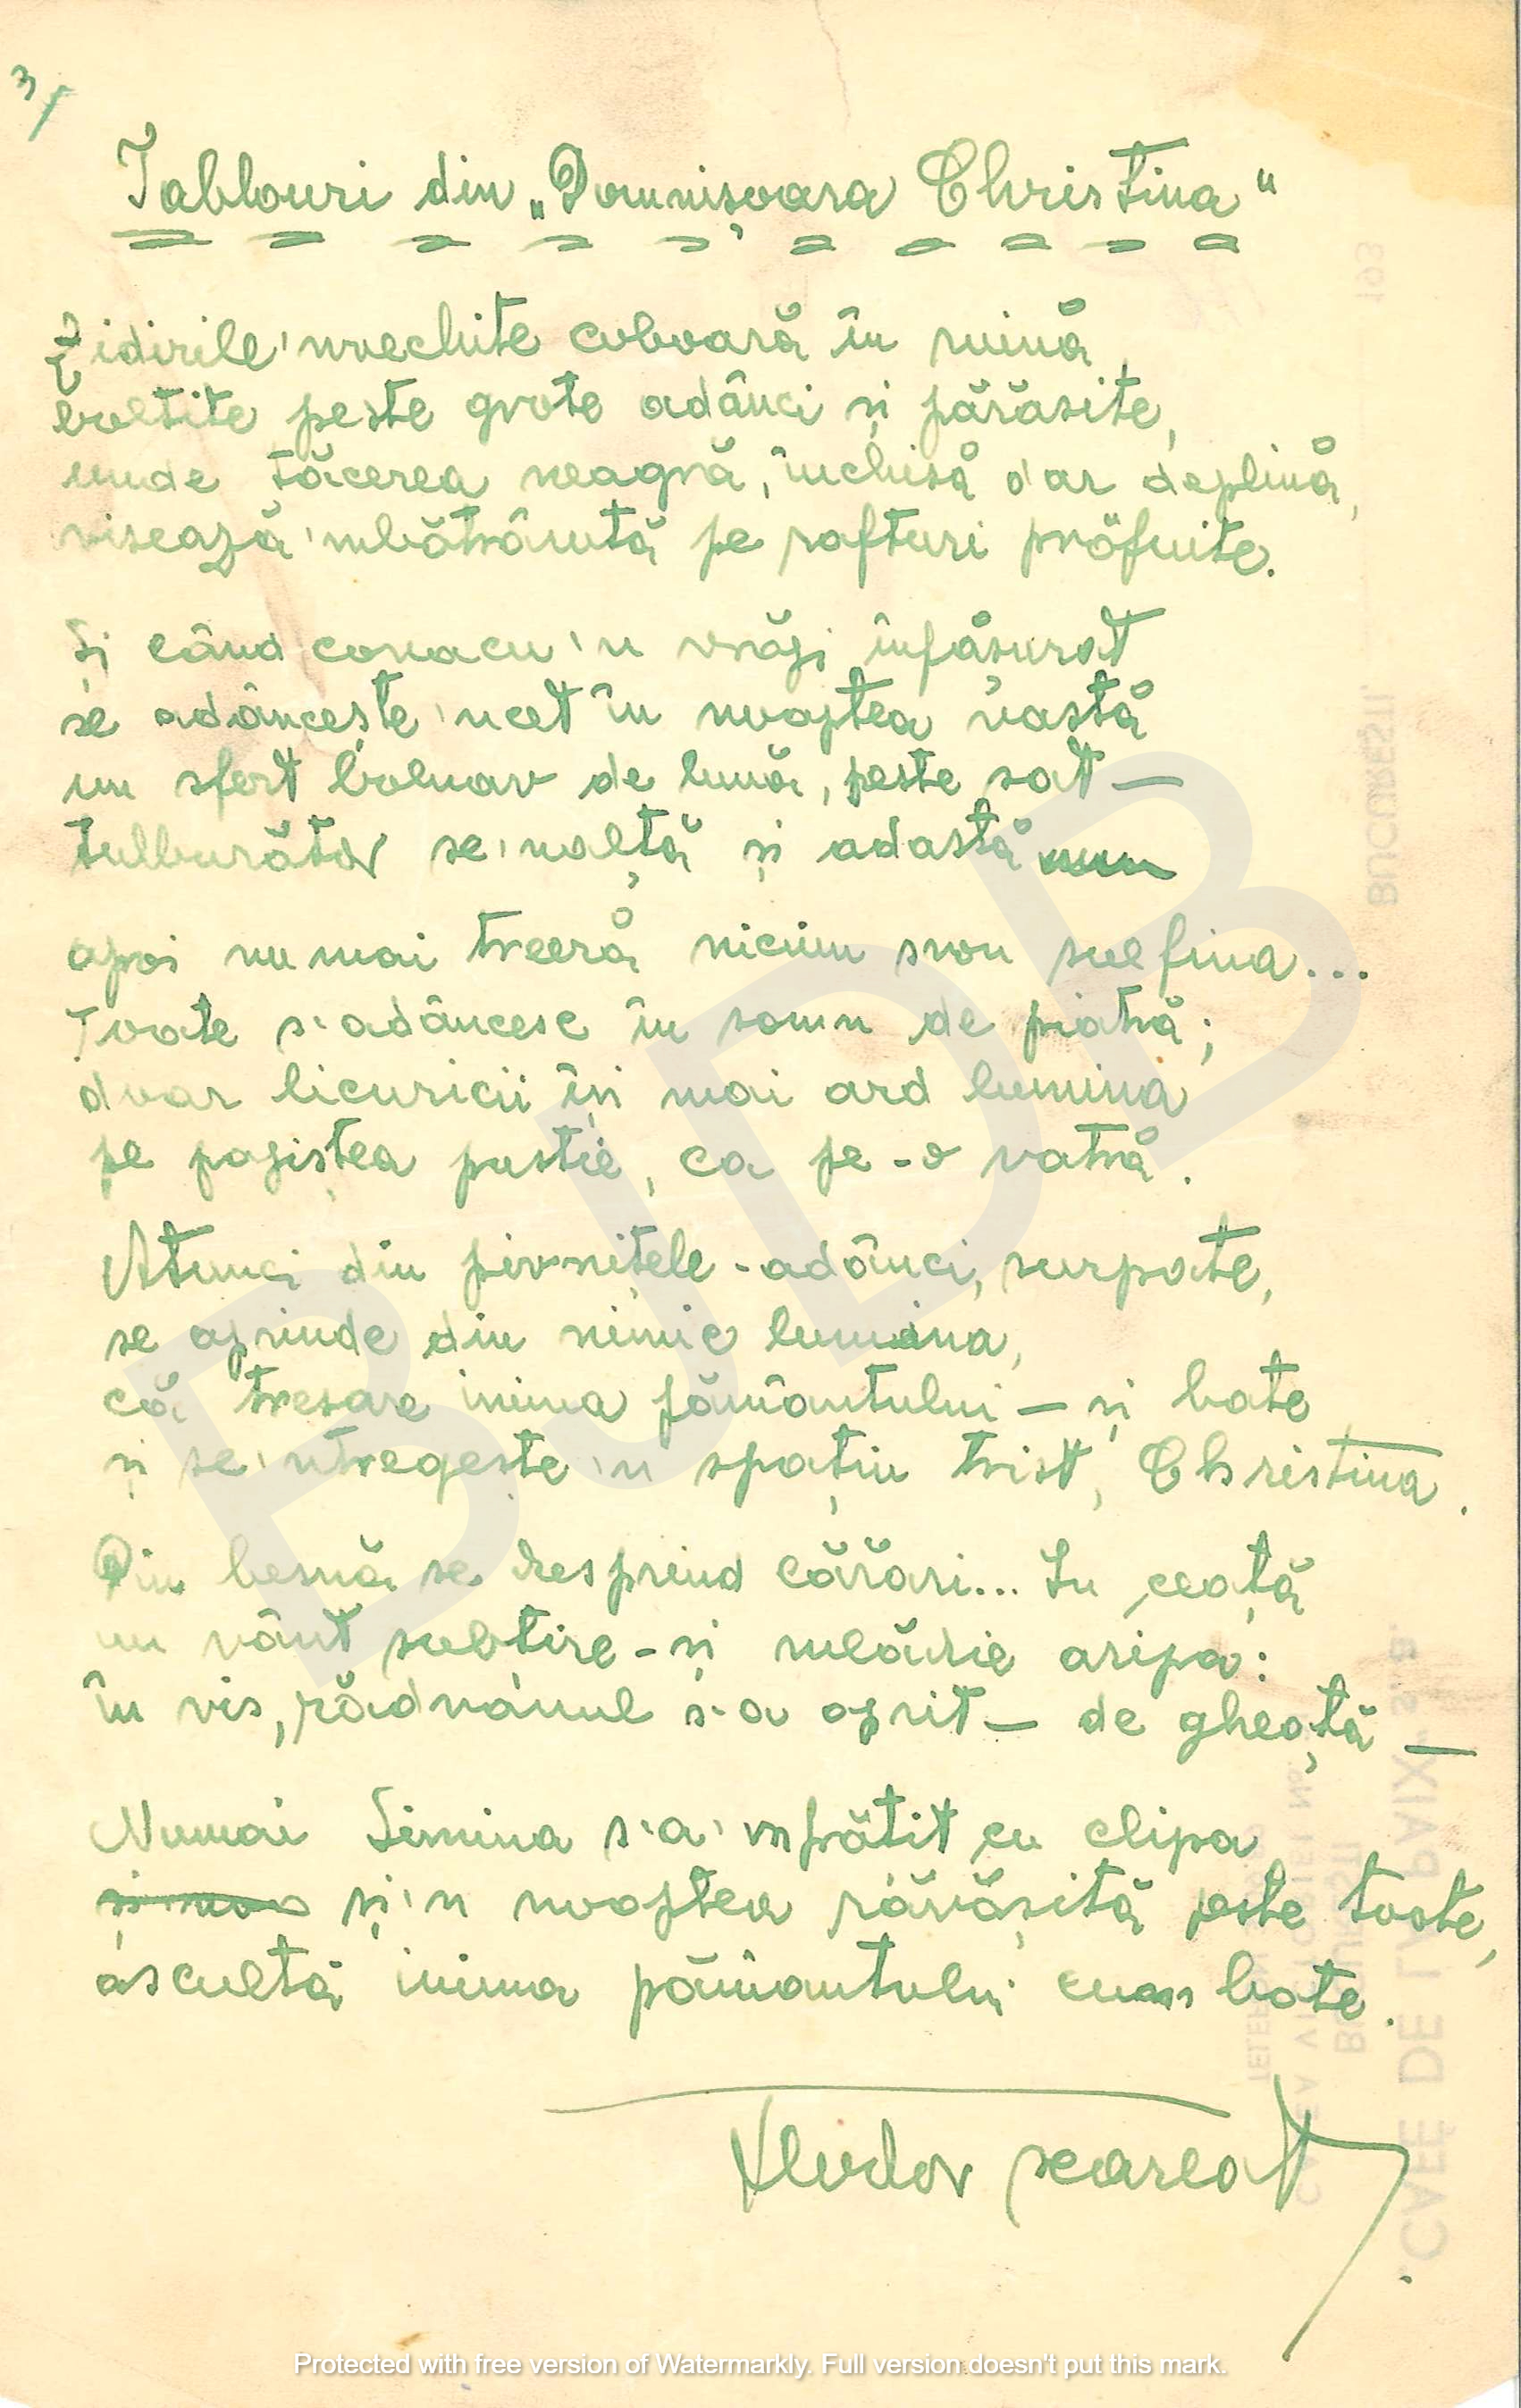 3/
Tablouri din „Domnișoara Christina"
Zidirile'nvechite coboară în ruină
boltite peste grote adânci și părăsite,
unde tăcerea neagră, închisă dar deplină,
visează'mbătrânită pe rafturi prăfuite.
Și când conacu'n vrăji înfășurat
se adâncește'ncet în noaptea vastă
un sfert bolnav de lună, peste sat —
tulburător se'nalță și adastă
apoi nu mai treeră niciun svon sulfina...
Toate s-adâncesc în somn de piatră;
doar licuricii își mai ard lumina
pe pajiștea pustie, ca pe-o vatră.
Atunci din pivnițele-adânci, surpate,
se aprinde din nimic lumina,
că tresare inima pământului — și bate
și se'ntregește'n spațiu trist, Christina.
Din besnă se desprind cărări... În ceață
un vânt subțire-și mlădie aripa:
în vis, rădvanul s-a oprit — de gheață —
Numai Simina s'a'mpătit cu clipa
și'n noaptea răvășită peste toate,
ascultă inima pământului cum bate.
Tudor Scarlat
193
BUCUREȘTI,
"CAFÉ DE LA PAIX" S.A.
BUCUREȘTI
CALEA VICTORIEI No.
TELEFON
BJDB
Protected with free version of Watermarkly. Full version doesn't put this mark.